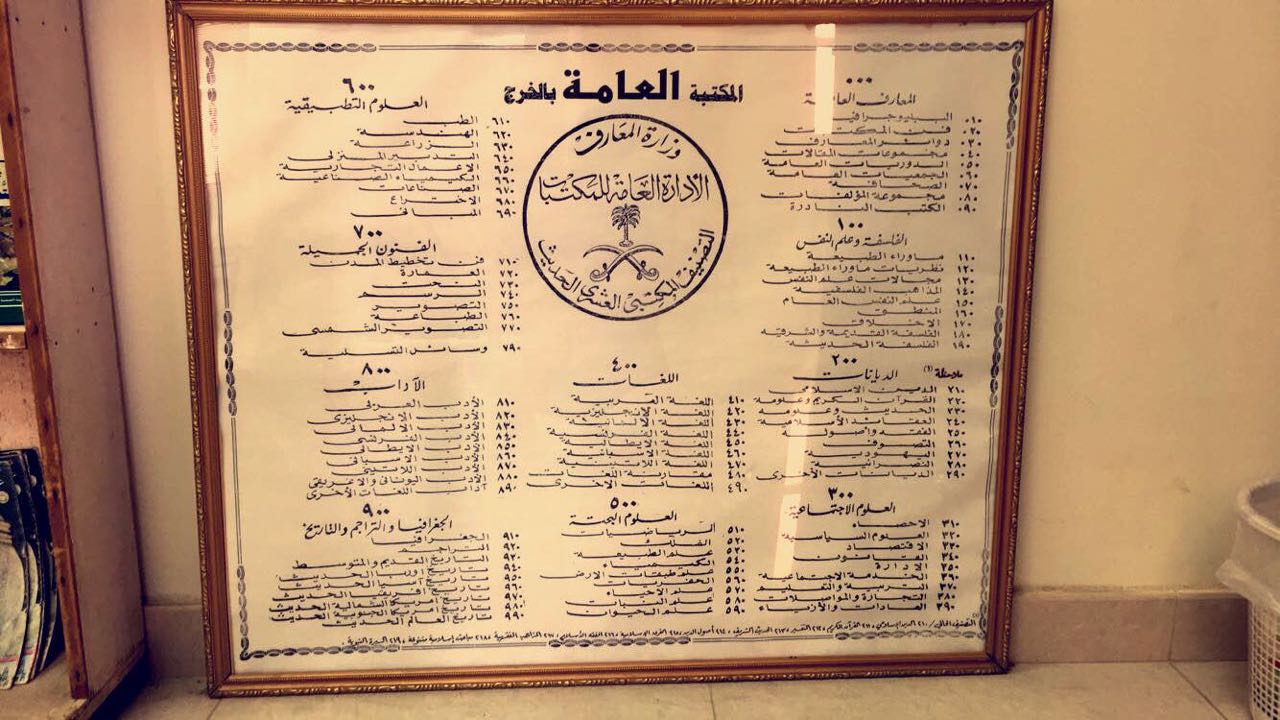 المكتبة العامة بالخرج
وزارة المعارف
الأدارة العامة للمكتبات
التصنيف المكتبي العشري الحديث
٠٠٠
المعارف العامة
٠١٠ الببليوجرافيا
٠٢٠ فن المكتبات
٠٣٠ دوائر المعارف
٠٤٠ مجموعات المقالات
٠٥٠ الدوريات العامة
الجمعيات العامة
٠٧٠ الصحافة
٠٨٠ مجموعة المؤلفات
٠٩٠ الكتب النادرة
١٠٠
الفلسفة وعلم النفس
١١٠ ماوراء الطبيعة
١٢٠ نظريات ماوراء الطبيعة
١٣٠ مجالات علم النفس
١٤٠ المذاهب الفلسفية
١٥٠ علم النفس العام
١٦٠ المنطق
١٧٠ الاخلاق
١٨٠ الفلسفة القديمة والشرقية
١٩٠ الفلسفة الحديثة
٢٠٠
الديانات
ملاحظة (١)
٢١٠ الدين الاسلامي
٢٢٠ القرآن الكريم وعلومه
٢٣٠ الحديث وعلومه
٢٤٠ العقائد الأسلامية
٢٥٠ الفقه وأصوله
٢٦٠ التصوف
٢٧٠ اليهودية
٢٨٠ النصرانية
٢٩٠ الديانات الأخرى
٣٠٠
العلوم الاجتماعية
٣١٠ الاحصاء
٣٢٠ العلوم السياسية
٣٣٠ الاقتصاد
٣٤٠ القانون
٣٥٠ الادارة
الخدمة الاجتماعية
التربية والتعليم
٣٨٠ التجارة والمواصلات
٣٩٠ العادات والأزياء
٤٠٠
اللغات
٤١٠ اللغة العربية
٤٢٠ اللغة الانجليزية
٤٣٠ اللغة الالمانية
٤٤٠ اللغة الفرنسية
٤٥٠ اللغة الايطالية
٤٦٠ اللغة الاسبانية
٤٧٠ اللغة اللاتينية
٤٨٠ مقارنة اللغات
٤٩٠ اللغات الأخرى
٥٠٠
العلوم البحتة
٥١٠ الرياضيات
٥٢٠ الفلك
٥٣٠ علم الطبيعة
٥٤٠ الكيمياء
٥٥٠ علم طبقات الارض
٥٦٠ الحفريات
٥٧٠ علم الأحياء
٥٨٠ علم النبات
٥٩٠ علم الحيوان
٦٠٠
العلوم التطبيقية
٦١٠ الطب
٦٢٠ الهندسة
٦٣٠ الزراعة
٦٤٠ التدبير المنزلي
الاعمال التجارية
الكيمياء الصناعية
الصناعات
الاختراع
٦٩٠ المباني
٧٠٠
الفنون الجميلة
٧١٠ فن تخطيط المدن
٧٢٠ العمارة
٧٣٠ النحت
٧٤٠ الرسم
٧٥٠ التصوير
٧٦٠ الطباعة
٧٧٠ التصوير الشمسي
٧٩٠ وسائل التسلية
٨٠٠
الآداب
٨١٠ الأدب العربي
٨٢٠ الأدب الانجليزي
٨٣٠ الأدب الالماني
٨٤٠ الأدب الفرنسي
٨٥٠ الأدب الايطالي
٨٦٠ الأدب الاسباني
٨٧٠ الأدب اللاتيني
٨٨٠ الأدب اليوناني والاغريقي
٨٩٠ آداب اللغات الأخرى
٩٠٠
الجغرافيا والتراجم والتاريخ
٩١٠ الجغرافيا
٩٢٠ التراجم
٩٣٠ التاريخ القديم والمتوسط
٩٤٠ تاريخ أوربا الحديث
٩٥٠ تاريخ آسيا الحديث
٩٦٠ تاريخ أفريقيا الحديث
٩٧٠ تاريخ أمريكا الشمالية الحديث
٩٨٠ تاريخ أمريكا الجنوبية الحديث
٩٩٠ تاريخ العالم الحديث